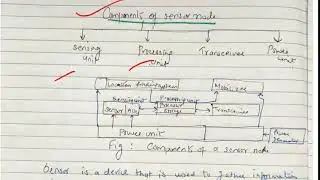 Components of sensor node
Sensing unit
Processing unit
Transceiver
Power unit
Location finding system
Mobilizer
Sensing unit
Processing unit
Sensor ADC
Processor
Storage
Transceiver
Power unit
Power
Fig : Components of a sensor node
Sensor is a device that is used to gather information